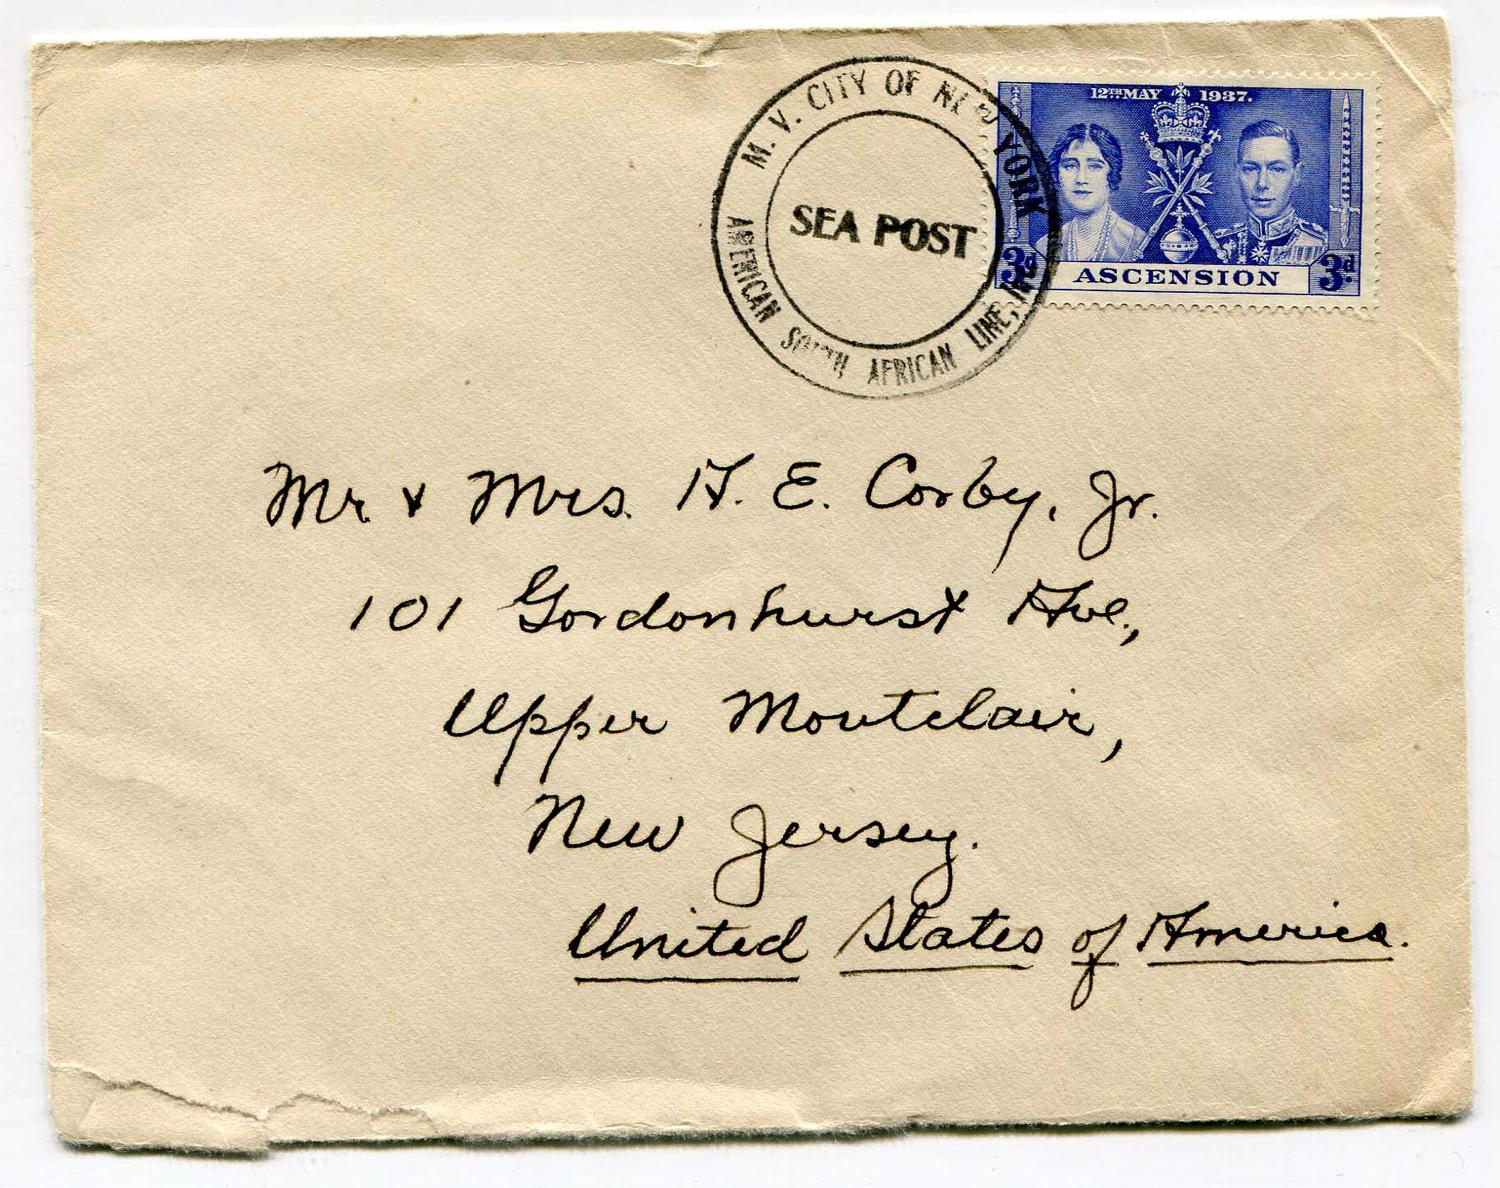 M. V. CITY OF NEW YORK
SEA POST
AMERICAN SOUTH AFRICAN LINE, INC
12TH MAY 1937.
3d
ASCENSION
3d
Mr & Mrs. H. E. Corby, Jr.
101 Gordonhurst Ave.,
Upper Montclair,
New Jersey.
United States of America.